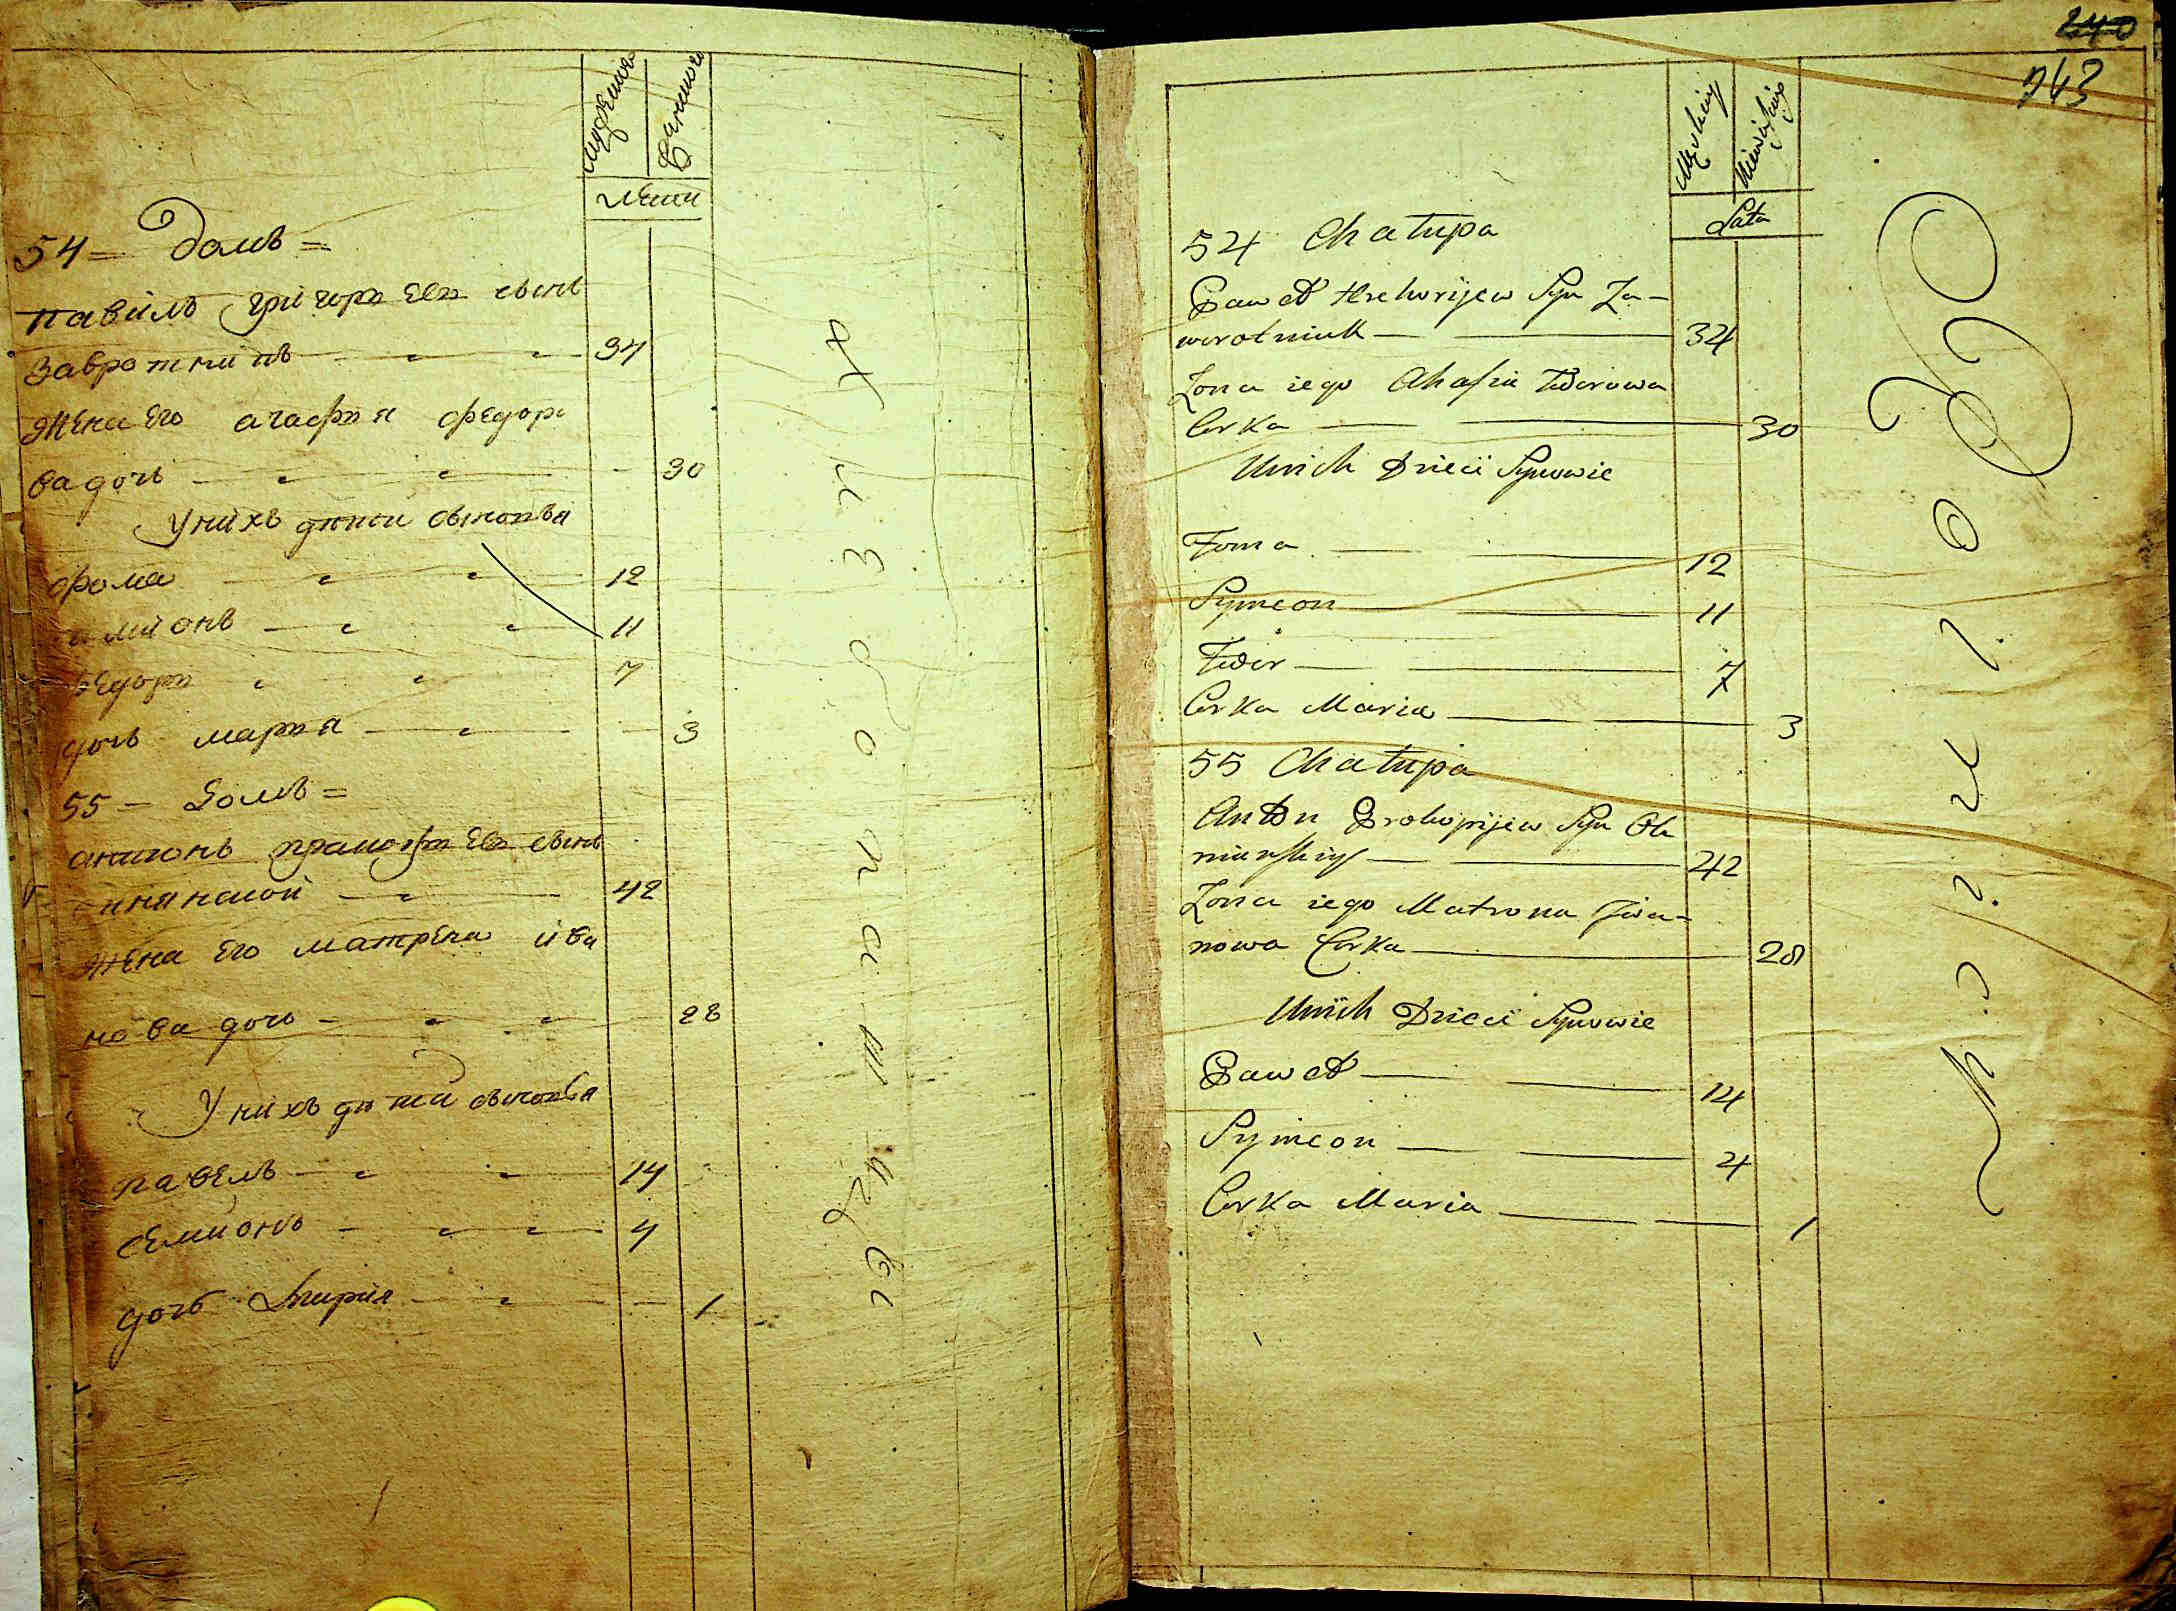 лѣти
54 = Домъ =
Павилъ Григоріевъ сынъ
Завротникъ 34
Жена Его Агафія Федоро
ва дочь 30
У нихъ дѣти сыновья
Фома 12
11
7
дочь Марія 3
55 — Домъ =
Антонъ Прокофіевъ сынъ
42
Жена Его Матрена Ива
нова дочь 28
У нихъ дѣти сыновья
Павелъ 14
Семионъ 4
дочь Марія 1
240
743
Męskiey
Lata
54 Chałupa
Paweł Hrehorijew Syn Za-
worotniuk 34
Żona iego Ahafia Fedorowa
Corka 30
Unich Dzieci Synowie
Foma 12
Symeon 11
Fedor 7
Corka Maria 3
55 Chałupa
Anton Prokopijew Syn
42
Żona iego Matrona Iwa-
nowa Corka 28
Unich Dzieci Synowie
Paweł 14
Symeon 4
Corka Maria 1